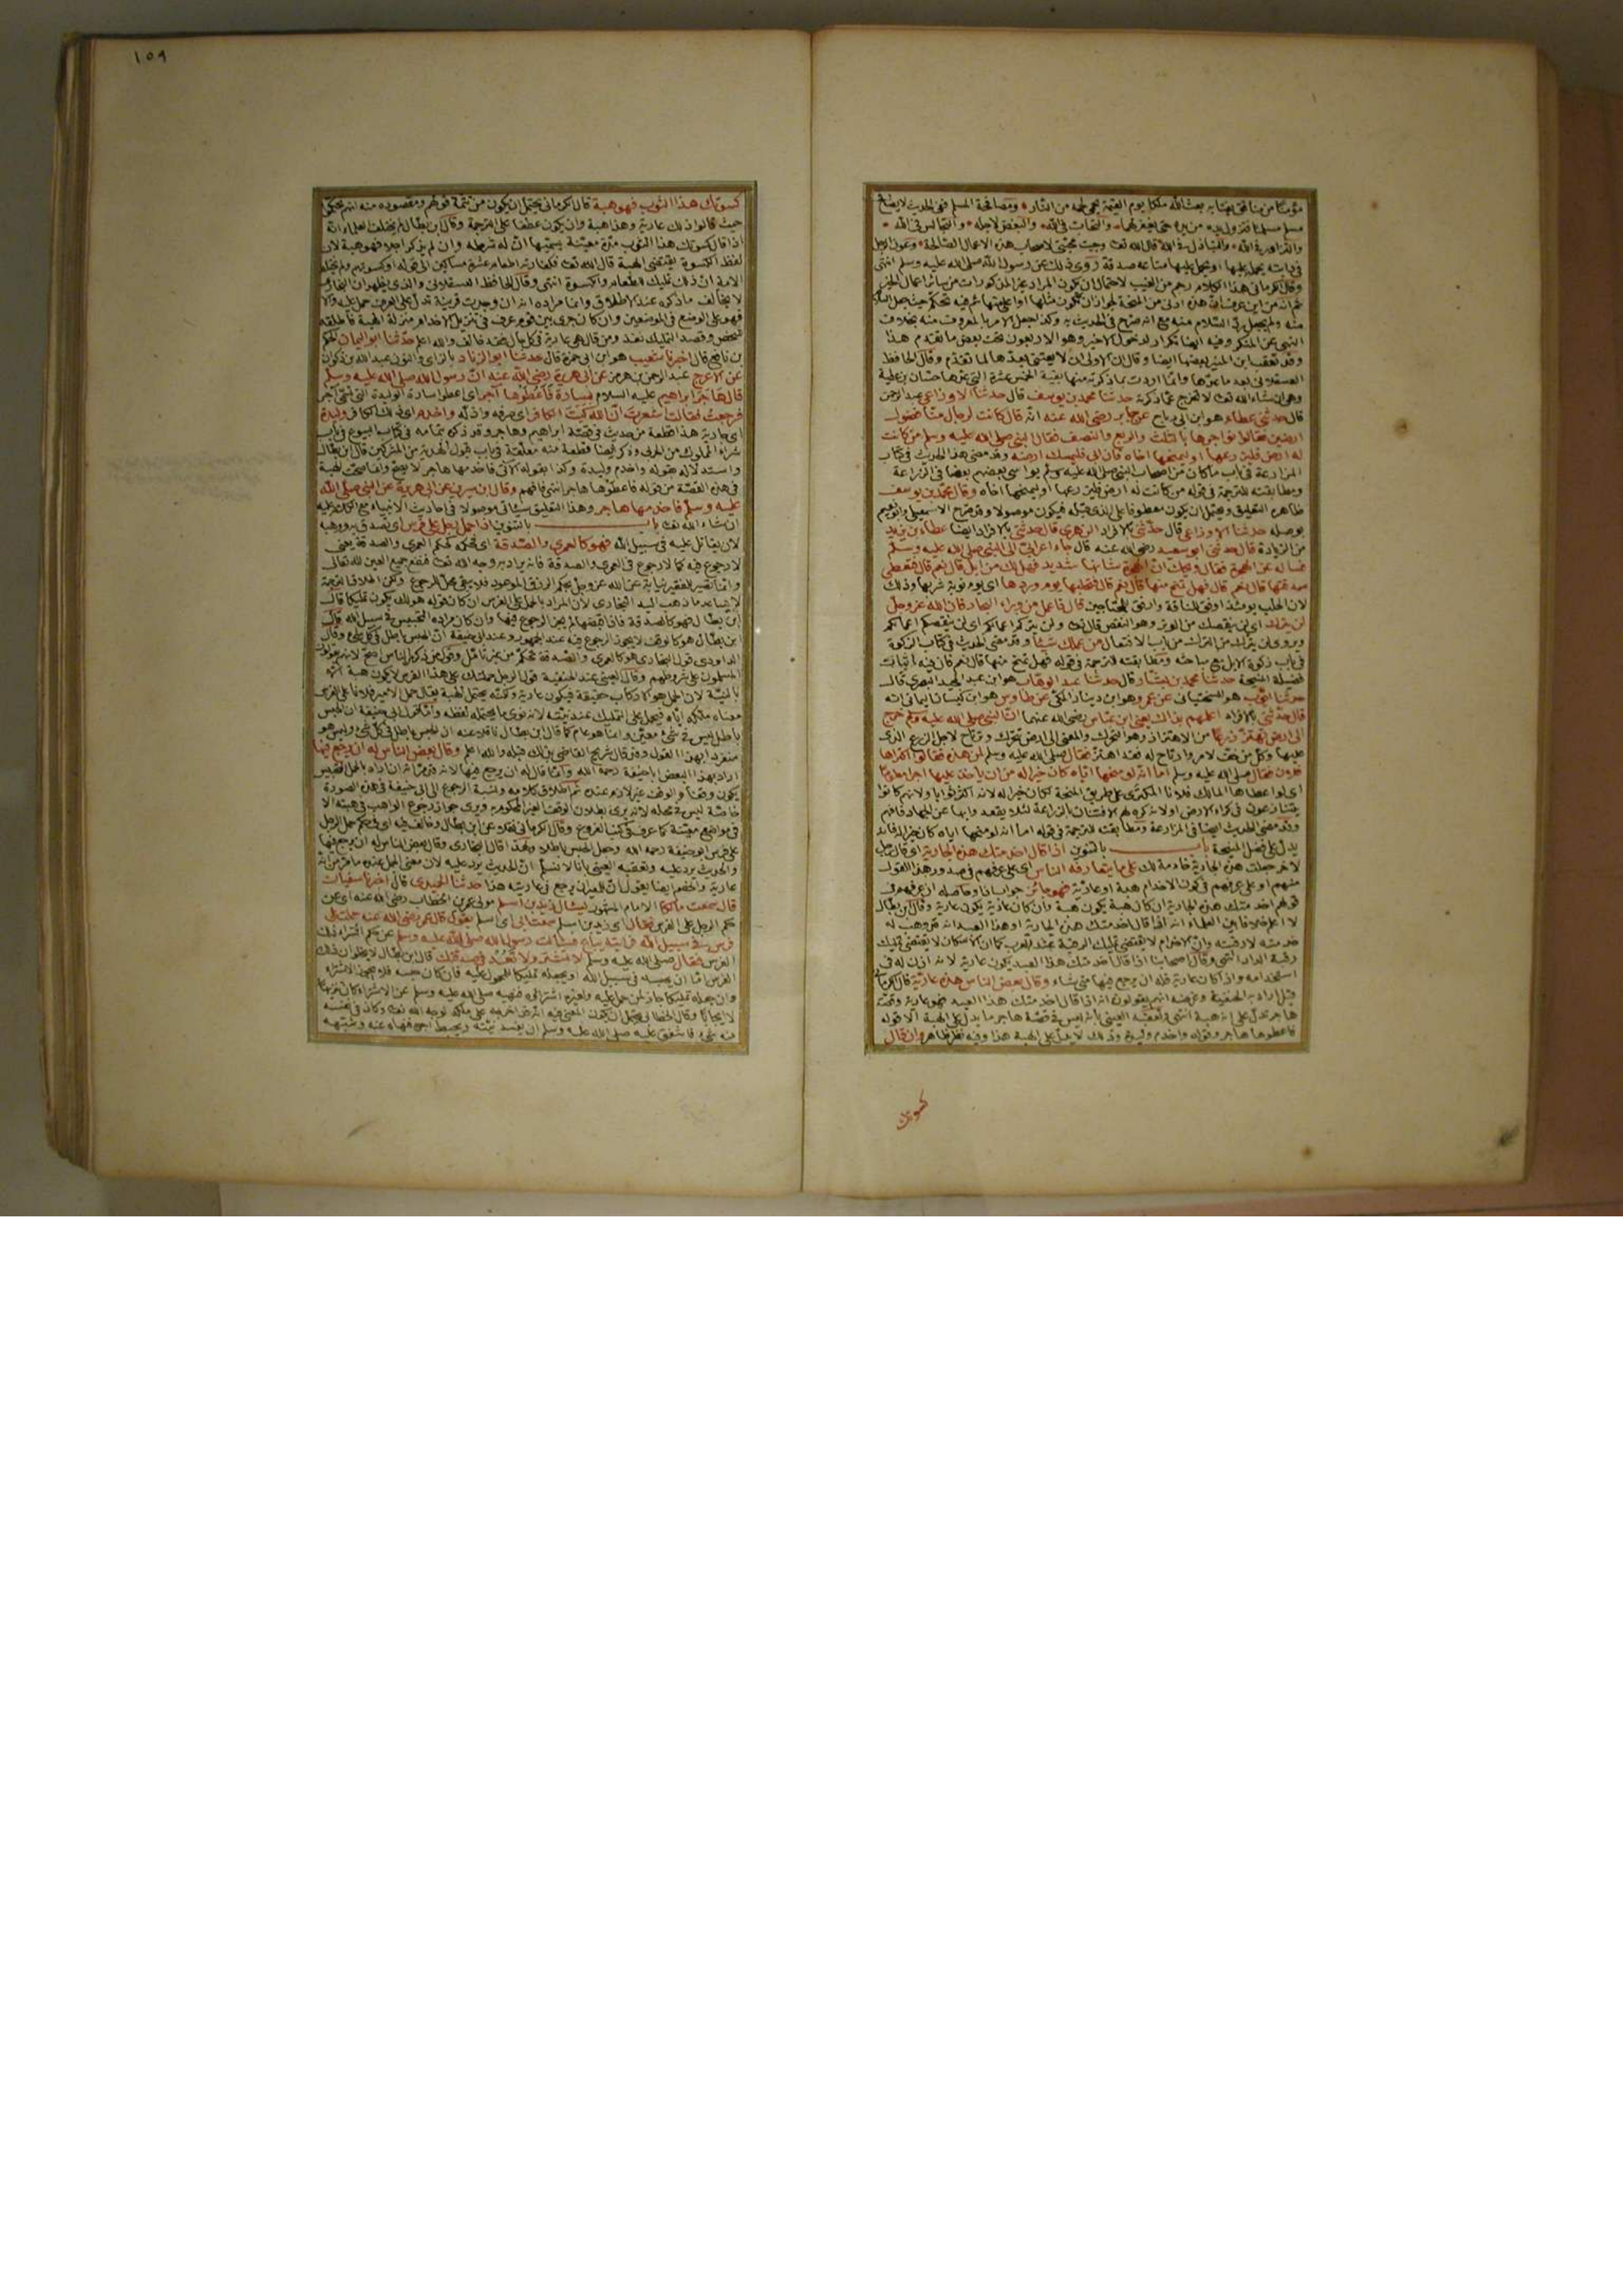 مؤمنا من منافق بعث الله ملكا يوم القيمة يحمى لحمه من النار ومصافحة المسلم
والتزاور في الله والتباذل في الله قال الله تعالى وجبت محبتي لاصحاب هذه الاعمال الصالحة وعون الرجل
في دابته يحمله عليها او يحمل عليها متاعه صدقة روى ذلك عن رسول الله صلى الله عليه وسلم انتهى
وقال الكرماني هذا الكلام رجم من الغيب لاحتمال ان يكون المراد غير المذكورات من سائر اعمال الخير
النهي عن المنكر وفيه ايضا تكرار لدخول الاخير وهو الاربعون تحت بعض ما تقدم هذا
وقد تعقب ابن المنير بعضها ايضا وقال ان الاولى ان لا يعتنى بعدها لما تقدم وقال الحافظ
وهي ان شاء الله تعالى لا تخرج عما ذكرته حدثنا محمد بن يوسف قال حدثنا الاوزاعي عبد الرحمن
قال حدثني عطاء هو ابن ابي رباح عن جابر رضي الله عنه انه قال كانت لرجال منا فضول
ارضين فقالوا نؤاجرها بالثلث والربع والنصف فقال النبي صلى الله عليه وسلم من كانت
له ارض فليزرعها او ليمنحها اخاه فان ابى فليمسك ارضه وقد مضى هذا الحديث في كتاب
المزارعة في باب ما كان من اصحاب النبي صلى الله عليه وسلم يواسي بعضهم بعضا في الزراعة
ومطابقته للترجمة في قوله من كانت له ارض فليزرعها او ليمنحها اخاه وقال محمد بن يوسف
ظاهره التعليق ويحتمل ان يكون معطوفا على الذي قبله فيكون موصولا وقد صرح الاسمعيلي وابو نعيم
بوصله حدثنا الاوزاعي قال حدثني بالافراد الزهري قال حدثني بالافراد ايضا عطاء بن يزيد
من الزيادة قال حدثني ابو سعيد رضي الله عنه قال جاء اعرابي الى النبي صلى الله عليه وسلم
فساله عن الهجرة فقال ويحك ان الهجرة شانها شديد فهل لك من ابل قال نعم قال فتعطي
صدقتها قال نعم قال فهل تمنح منها قال نعم قال فتحلبها يوم وردها اى يوم نوبة شربها وذلك
لان الحلب يومئذ اوفق للناقة وارفق للمحتاجين قال فاعمل من وراء البحار فان الله عز وجل
لن يترك اى لن ينقصك من الوتر وهو النقص قال تعالى ولن يتركم اعمالكم اى لن ينقصكم اعمالكم
ويروى لن يترك من الترك من باب الافتعال من عملك شيئا وقد مضى الحديث في كتاب الزكوة
في باب زكوة الابل مع مباحثه ومطابقته للترجمة في قوله فهل تمنح منها قال نعم فان فيه اثبات
فضيلة المنيحة حدثنا محمد بن بشار قال حدثنا عبد الوهاب هو ابن عبد المجيد البصري قال
حدثنا ايوب هو السختياني عن عمرو هو ابن دينار المكي عن طاوس هو ابن كيسان اليماني انه
قال حدثني بالافراد اعلمهم بذاك يعني ابن عباس رضي الله عنهما ان النبي صلى الله عليه وسلم خرج
الى ارض تهتز زرعا من الاهتزاز وهو التحرك والمعنى الى ارض تتحرك وترتاح لاجل الزرع الذي
عليها وكل من خف لامر وارتاح له فقد اهتز فقال صلى الله عليه وسلم لمن هذه فقالوا اكتراها
فلان فقال صلى الله عليه وسلم اما انه لو منحها اياه كان خيرا له من ان ياخذ عليها اجرا معلوما
اى لو اعطاها المالك فلانا المكترى على طريق المنحة لكان خيرا له لانه اكثر ثوابا ولانهم كانوا
يتنازعون في كراء الارض او لانه كره لهم الافتتان بالزراعة لئلا يقعدوا بها عن الجهاد
وقد مضى الحديث ايضا في المزارعة ومطابقته للترجمة في قوله اما انه لو منحها اياه كان خيرا له فانه
يدل على فضل المنيحة باب بالتنوين اذا قال اخدمتك هذه الجارية اى قال رجل
لاخر جعلت هذه الجارية خادمة لك على ما يتعارفه الناس اى على عرفهم في صدور هذا القول
منهم او على عرفهم في كون الاخدام هبة او عارية فهو جائز جواب اذا وحاصله ان عرفهم في
قولهم اخدمتك هذه الجارية ان كان هبة يكون هبة وان كان عارية يكون عارية وقال ابن بطال
لا اعلم خلافا بين العلماء انه اذا قال اخدمتك هذه الجارية او هذا العبد انه قد وهب له
خدمته لا رقبته وان الاخدام لا يقتضي تمليك الرقبة عند العرب كما ان الاسكان لا يقتضي تمليك
رقبة الدار انتهى وقال اصحابنا اذا قال اخدمتك هذا العبد يكون عارية لانه اذن له في
استخدامه واذا كان عارية فله ان يرجع فيها متى شاء وقال بعض الناس هذه عارية قال الكرماني
قيل اراد به الحنفية وغرضه انهم يقولون انه اذا قال اخدمتك هذا العبد فهو عارية وقصة
هاجر تدل على انه هبة انتهى وتعقبه العيني بانه ليس في قصة هاجر ما يدل على الهبة الا قوله
فاعطوها هاجر وقوله واخدم وليدة وذلك لا يدل على الهبة هذا وفيه نظر ظاهر وان قال
كسوتك
١٥٩
كسوتك هذا الثوب فهو هبة قال الكرماني يحتمل ان يكون من تتمة قولهم ومقصوده منه انهم تحكموا
حيث قالوا ذلك عارية وهذا هبة وان يكون عطفا على الترجمة وقال ابن بطال لم يختلف العلماء انه
اذا قال كسوتك هذا الثوب مدة معينة يسميها ان له شرطه وان لم يذكر اجلا فهو هبة لان
لفظ الكسوة يقتضي الهبة قال الله تعالى فكفارته اطعام عشرة مساكين الى قوله او كسوتهم ولم تختلف
الامة ان ذلك تمليك الطعام والكسوة انتهى وقال الحافظ العسقلاني والذي يظهر ان البخاري
لا يخالف ما ذكره عند الاطلاق وانما مراده انه ان وجدت قرينة تدل على العرف حمل عليه والا
فهو على الوضع في الموضعين وان كان جرى بين قوم عرف في تنزيل الاخدام منزلة الهبة فاطلقه
شخص وقصد التمليك نفذ ومن قال هي عارية في كل حال فقد خالف والله اعلم حدثنا ابو اليمان الحكم
بن نافع قال اخبرنا شعيب هو ابن ابي حمزة قال حدثنا ابو الزناد بالزاي والنون عبد الله بن ذكوان
عن الاعرج عبد الرحمن بن هرمز عن ابي هريرة رضي الله عنه ان رسول الله صلى الله عليه وسلم
قال هاجر ابراهيم عليه السلام بسارة فاعطوها آجر اى اعطوا سارة الوليدة التي تسمى آجر
فرجعت فقالت اشعرت ان الله كبت الكافر اى صرفه واذله واخدم اى ذلك الكافر وليدة
اى جارية هذا قطعة من حديث في قصة ابراهيم وهاجر وقد ذكره بتمامه في كتاب البيوع في باب
شراء المملوك من الحربي وذكر ايضا قطعة منه معلقة في باب قبول الهدية من المشركين قال ابن بطال
واستدلاله بقوله واخدم وليدة وكذا بقوله الآتي فاخدمها هاجر لا يصح وانما صحت الهبة
في هذه القصة من قوله فاعطوها هاجر انتهى فافهم وقال ابن سيرين عن ابي هريرة عن النبي صلى الله
عليه وسلم فاخدمها هاجر وهذا التعليق سياتي موصولا في احاديث الانبياء مع الكلام عليه
ان شاء الله تعالى باب بالتنوين اذا حمل رجل على فرس اى تصدق به ووهبه
لان يقاتل عليه في سبيل الله فهو كالعمرى والصدقة اى فحكمه كحكم العمرى والصدقة يعني
لا رجوع فيه كما لا رجوع في العمرى والصدقة فانه يراد به وجه الله تعالى فتقع جميع العين لله تعالى
وانما تصير للفقير نيابة عن الله عز وجل بحكم الرزق الموعود فلا يبقى محل الرجوع
لا يساعد ما ذهب اليه البخاري لان المراد بالحمل على الفرس ان كان بقوله هو لك يكون تمليكا قال
ابن بطال فهو كالصدقة فاذا قبضها لم يجز الرجوع فيها وان كان مراده التحبيس في سبيل الله قال
ابن بطال هو كالوقف لا يجوز الرجوع فيه عند الجمهور وعند ابي حنيفة ان الحبس باطل في كل شئ وقال
الداودي قول البخاري هو كالعمرى والصدقة تحكم من غير تامل وقول من ذكر من الناس اصح
المسلمون على شروطهم وقال العيني عند الحنفية قول الرجل حملتك على هذا الفرس لا يكون هبة الا
بالنية لان الحمل هو الاركاب حقيقة فيكون عارية ولكنه يحتمل الهبة يقال حمل الامير فلانا على الفرس
معناه ملكه اياه فيحمل على التمليك عند نيته لانه نوى ما يحتمله لفظه وانما قول ابي حنيفة ان الحبس
باطل ليس في شئ معين وانما هو عام كما قال ابن بطال ناقلا عنه ان الحبس باطل في كل شئ وليس هو
منفردا بهذا القول وقد قال شريح القاضي بذلك قبله والله اعلم وقال بعض الناس له ان يرجع فيها
اراد بهذا البعض ابا حنيفة رحمه الله وانما قال له ان يرجع فيها لانه
يكون وقفا والوقف غير لازم عنده ثم اطلاق كلامه ونسبة الرجوع الى ابي حنيفة في هذه الصورة
خاصة ليس في محله لانه يرى بطلان الوقف الغير المحكوم به ويرى جواز رجوع الواهب في هبته الا
في مواضع معينة كما عرف في كتب الفروع وقال الكرماني نقلا عن ابن بطال وخالف فيه اى في حكم حمل الرجل
على فرس ابو حنيفة رحمه الله وجعل الحبس باطلا ولهذا قال البخاري وقال بعض الناس له ان يرجع فيها
والحديث يرد عليه وتعقبه العيني بانا لا نسلم ان الحديث يرد عليه لان معنى الحمل عنده ما مر من انه
عارية والخصم ايضا يقول ان للمعير ان يرجع في عاريته هذا حدثنا الحميدي قال اخبرنا سفيان
قال سمعت مالكا الامام المشهور يسال زيد بن اسلم مولى عمر بن الخطاب رضي الله عنه اى عن
حكم الرجل على الفرس فقال اى زيد بن اسلم سمعت ابي اى اسلم يقول قال عمر رضي الله عنه حملت على
فرس في سبيل الله فرايته يباع فسالت رسول الله صلى الله عليه وسلم عن حكم اشتراء ذلك
الفرس فقال صلى الله عليه وسلم لا تشتر ولا تعد في صدقتك قال ابن بطال لا يخلو ان ذلك
الفرس اما ان يحبسه في سبيل الله او يجعله تمليكا للمحمول عليه فان كان حبسه فلا يجوز الاشتراء
وان جعله تمليكا جاز لمن حمل عليه ولغيره اشتراؤه فنهيه صلى الله عليه وسلم عن الاشتراء كان تنزيها
لا ايجابا وقال الخطابي يحتمل ان يكون المعنى فيه انه اخرجه عن ملكه لوجه الله تعالى وكان في نفسه
منه شئ فاشفق عليه صلى الله عليه وسلم ان يفسد نيته ويحبط اجره فنهاه عنه وشبهه